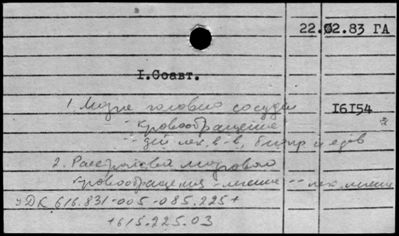 22.02.83 ГА
I.Соавт.
1. Мозг головно сосуды
I6I54
- кровообращение
- дій лек. в-в,
2. Расстройства мозгового
кровообращения - лечение -- лек.
УДК 616.831-005-085.225+
+615.225.03